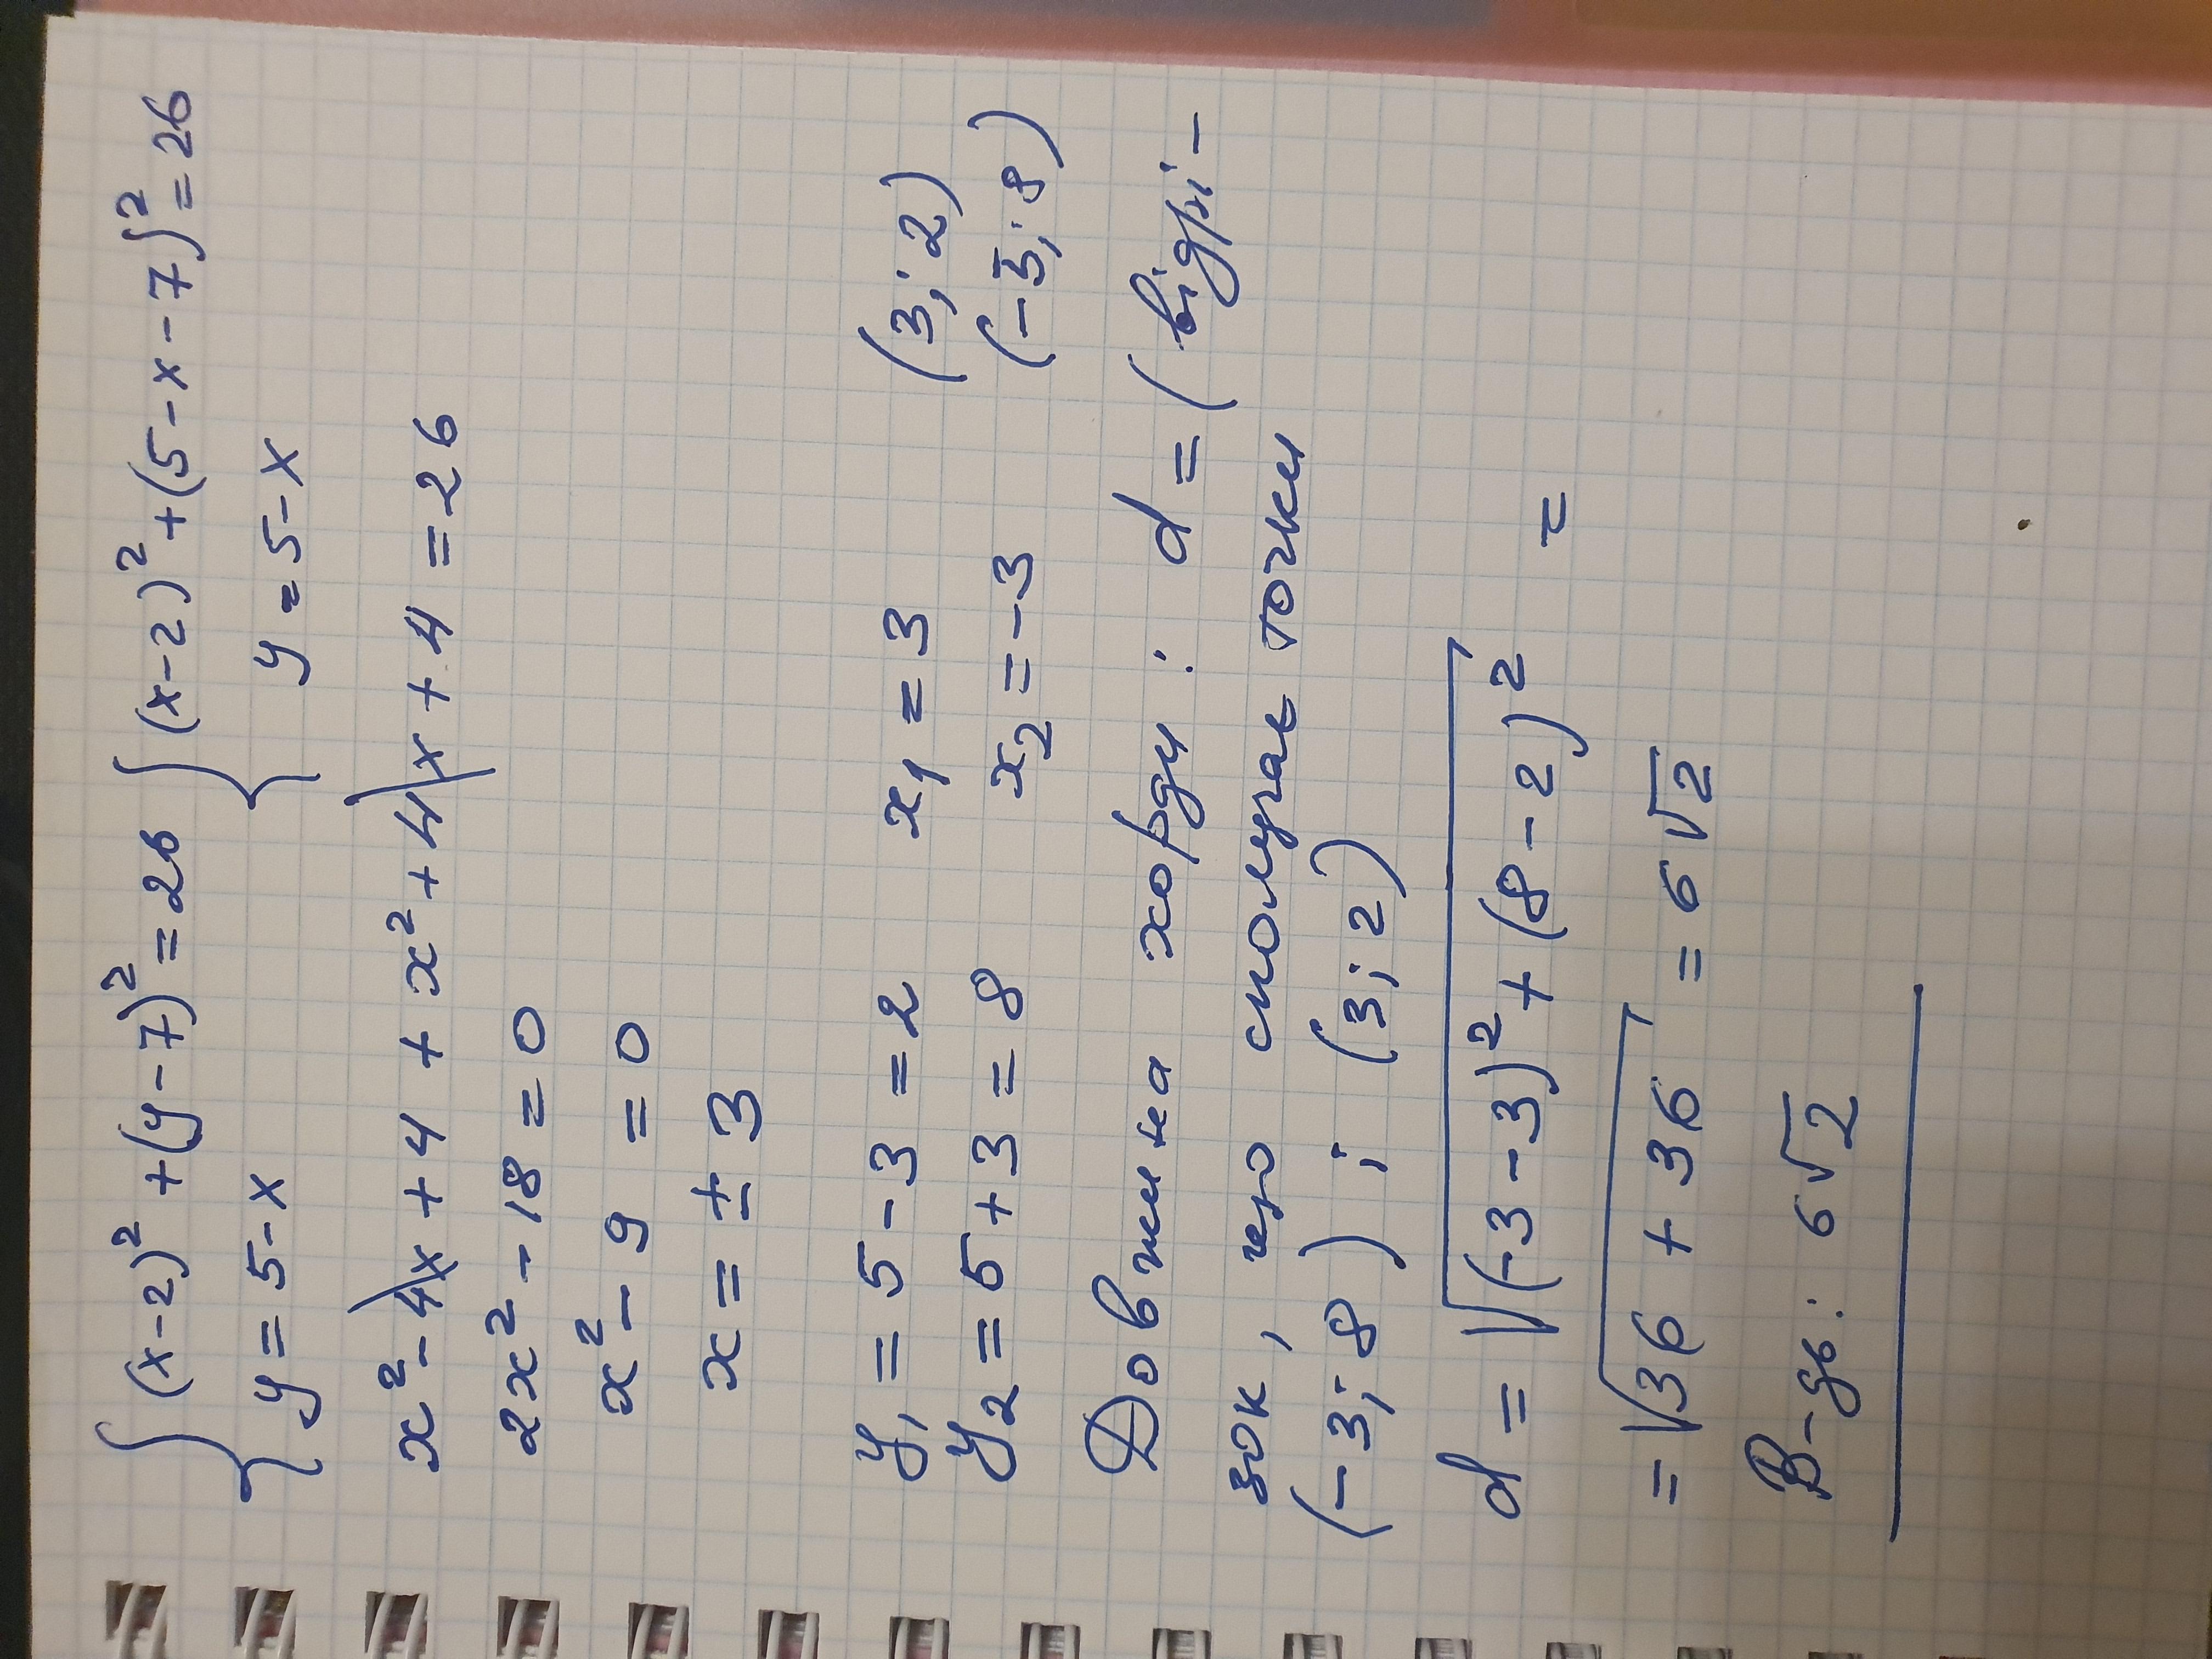 { (x-2)² + (y-7)² = 26 { (x-2)² + (5-x-7)² = 26
y = 5-x y = 5-x
x² - 4x + 4 + x² + 4x + 4 = 26
2x² - 18 = 0
x² - 9 = 0
x = ± 3
y₁ = 5 - 3 = 2 x₁ = 3 (3; 2)
y₂ = 5 + 3 = 8 x₂ = -3 (-3; 8)
Довжина хорди : d = (відрі-
зок, що сполучає точки
(-3; 8) ; (3; 2)
d = √(-3-3)² + (8-2)² =
= √36 + 36 = 6√2
В-дь: 6√2